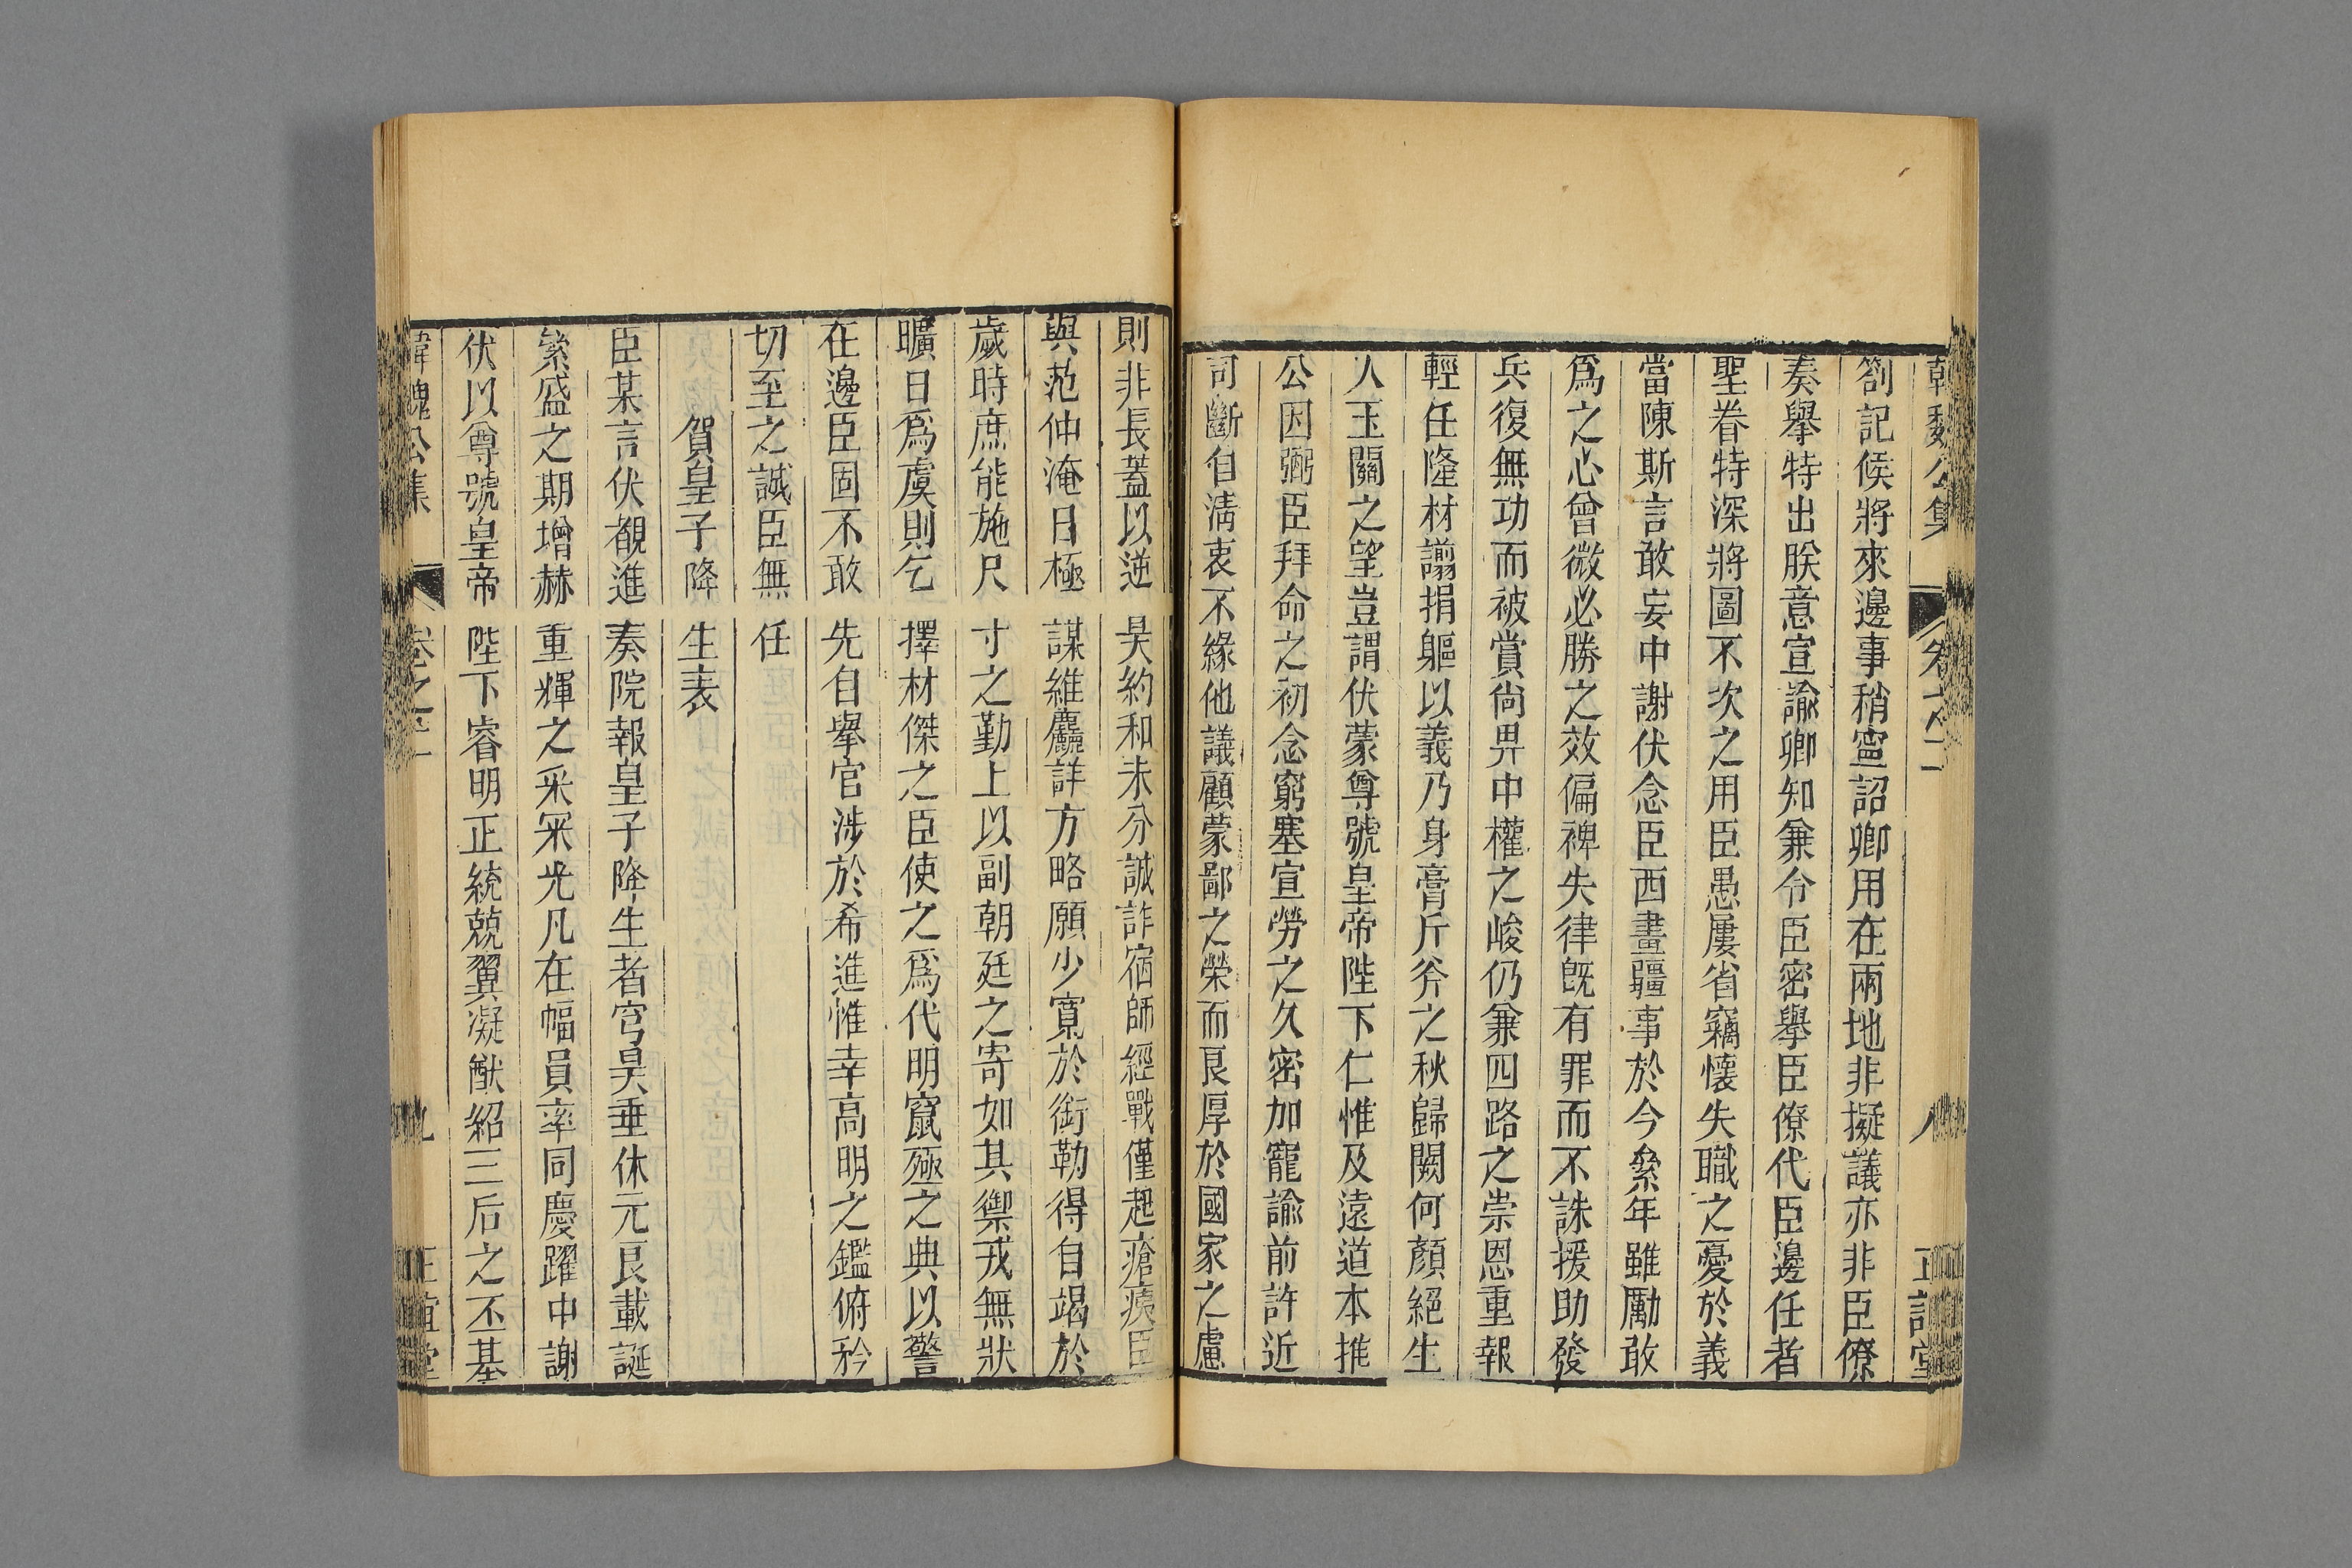 韓魏公集 卷之二 八 正誼堂
劄記候將來邊事稍寧詔卿用在兩地非擬議亦非臣僚
奏舉特出朕意宣諭卿知兼令臣密舉臣僚代臣邊任者
聖眷特深將圖不次之用臣愚屢省竊懷失職之憂於義
當陳斯言敢妄中謝伏念臣西畫疆事於今絫年雖勵敢
爲之心曾微必勝之效偏裨失律旣有罪而不誅援助發
兵復無功而被賞尙畀中權之峻仍兼四路之崇恩重報
輕任隆材譾捐軀以義乃身膏斤斧之秋歸闕何顏絕生
入玉關之望豈謂伏蒙尊號皇帝陛下仁惟及遠道本推
公因弼臣拜命之初念窮塞宣勞之久密加寵諭前許近
司斷自淸衷不緣他議顧蒙鄙之榮而艮厚於國家之慮
則非長蓋以逆昊約和未分誠詐宿師經戰僅起瘡痍臣
與范仲淹日極謀維麤詳方略願少寬於銜勒得自竭於
歲時庶能施尺寸之勤上以副朝廷之寄如其禦戎無狀
曠日爲虞則乞擇材傑之臣使之爲代明竄殛之典以警
在邊臣固不敢先自舉官涉於希進惟幸高明之鑑俯矜
切至之誠臣無任
賀皇子降生表
臣某言伏覩進奏院報皇子降生者穹昊垂休元艮載誕
繁盛之期增赫重輝之采冞光凡在幅員率同慶躍中謝
伏以尊號皇帝陛下睿明正統兢翼凝猷紹三后之丕基
韓魏公集 卷之二 九 正誼堂